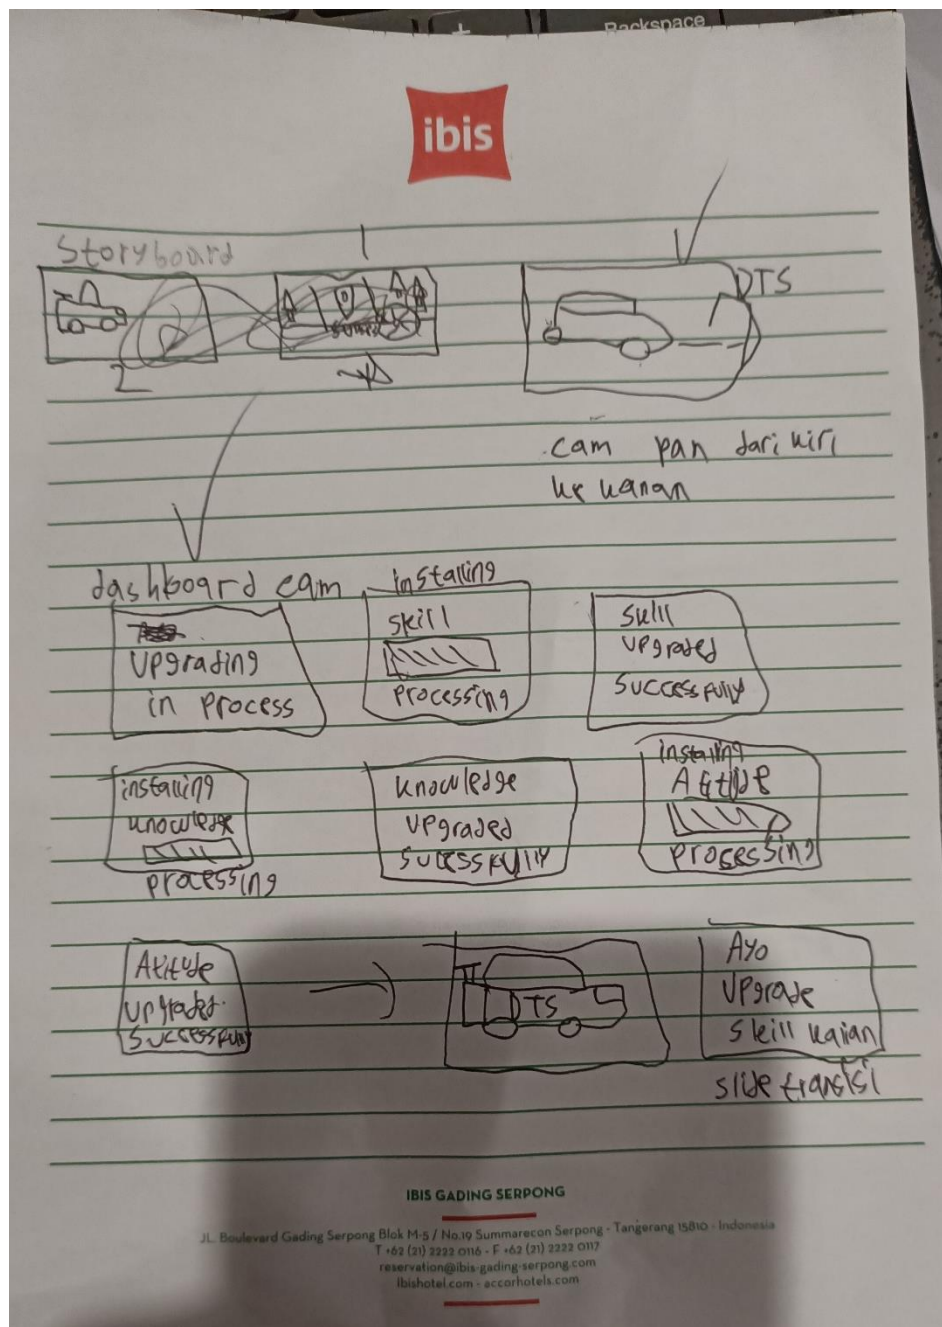 Backspace
ibis
Storyboard
1
2
DTS
cam pan dari kiri
ke kanan
dashboard cam
Upgrading
in process
installing
skill
processing
skill
Upgraded
successfully
installing
knowledge
processing
knowledge
Upgraded
Sucessfully
installing
Attitude
processing
Atitude
upgraded
successfully
DTS
Ayo
Upgrade
skill kalian
slide transisi
IBIS GADING SERPONG
JL. Boulevard Gading Serpong Blok M-5 / No.19 Summarecon Serpong - Tangerang 15810 - Indonesia
T +62 (21) 2222 0116 - F +62 (21) 2222 0117
reservation@ibis-gading-serpong.com
ibishotel.com - accorhotels.com